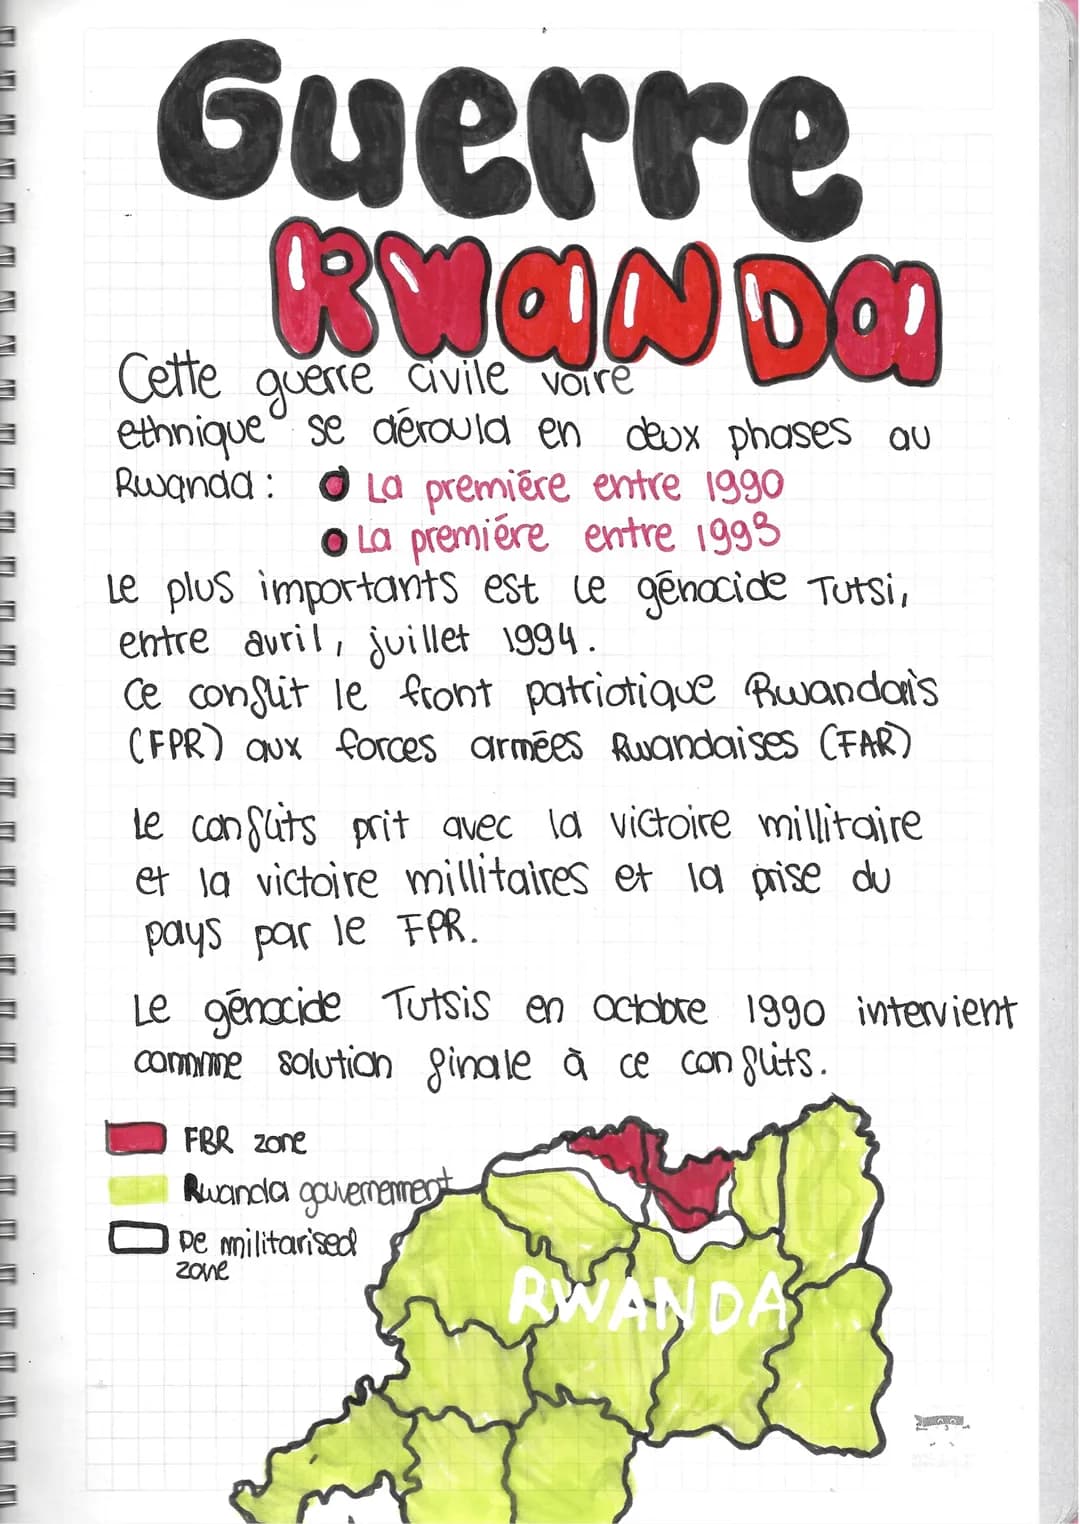 Guerre
RWANDA
Cette guerre civile voire
ethnique se déroula en deux phases au
Rwanda :
La premiére entre 1990
La premiére entre 1993
Le plus importants est le génocide Tutsi,
entre avril, juillet 1994.
Ce conflit le front patriotique Rwandais
(FPR) aux forces armées Rwandaises (FAR)
Le conflits prit avec la victoire millitaire
et la victoire millitaires et la prise du
pays par le FPR.
Le génocide Tutsis en octobre 1990 intervient
comme solution finale à ce conflits.
FBR zone
Rwanda gouvernement
De militarised
zone
RWANDA